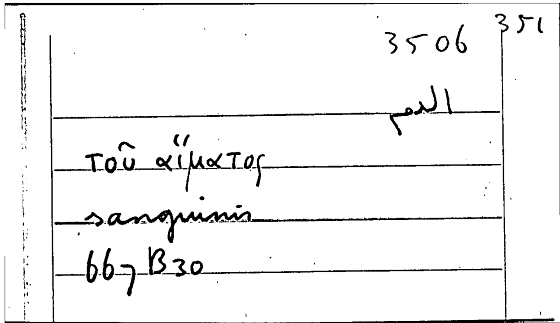 3506 351
الدم
τοῦ αἵματος
sanguinis
667 B30